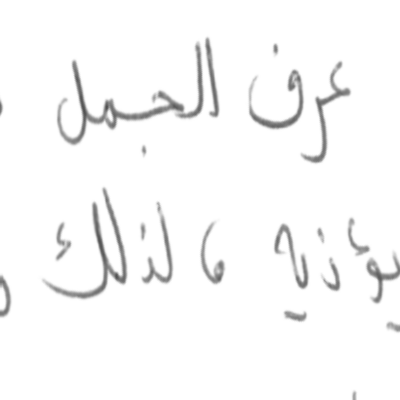 عرف الجمل
يؤذيه ، لذلك